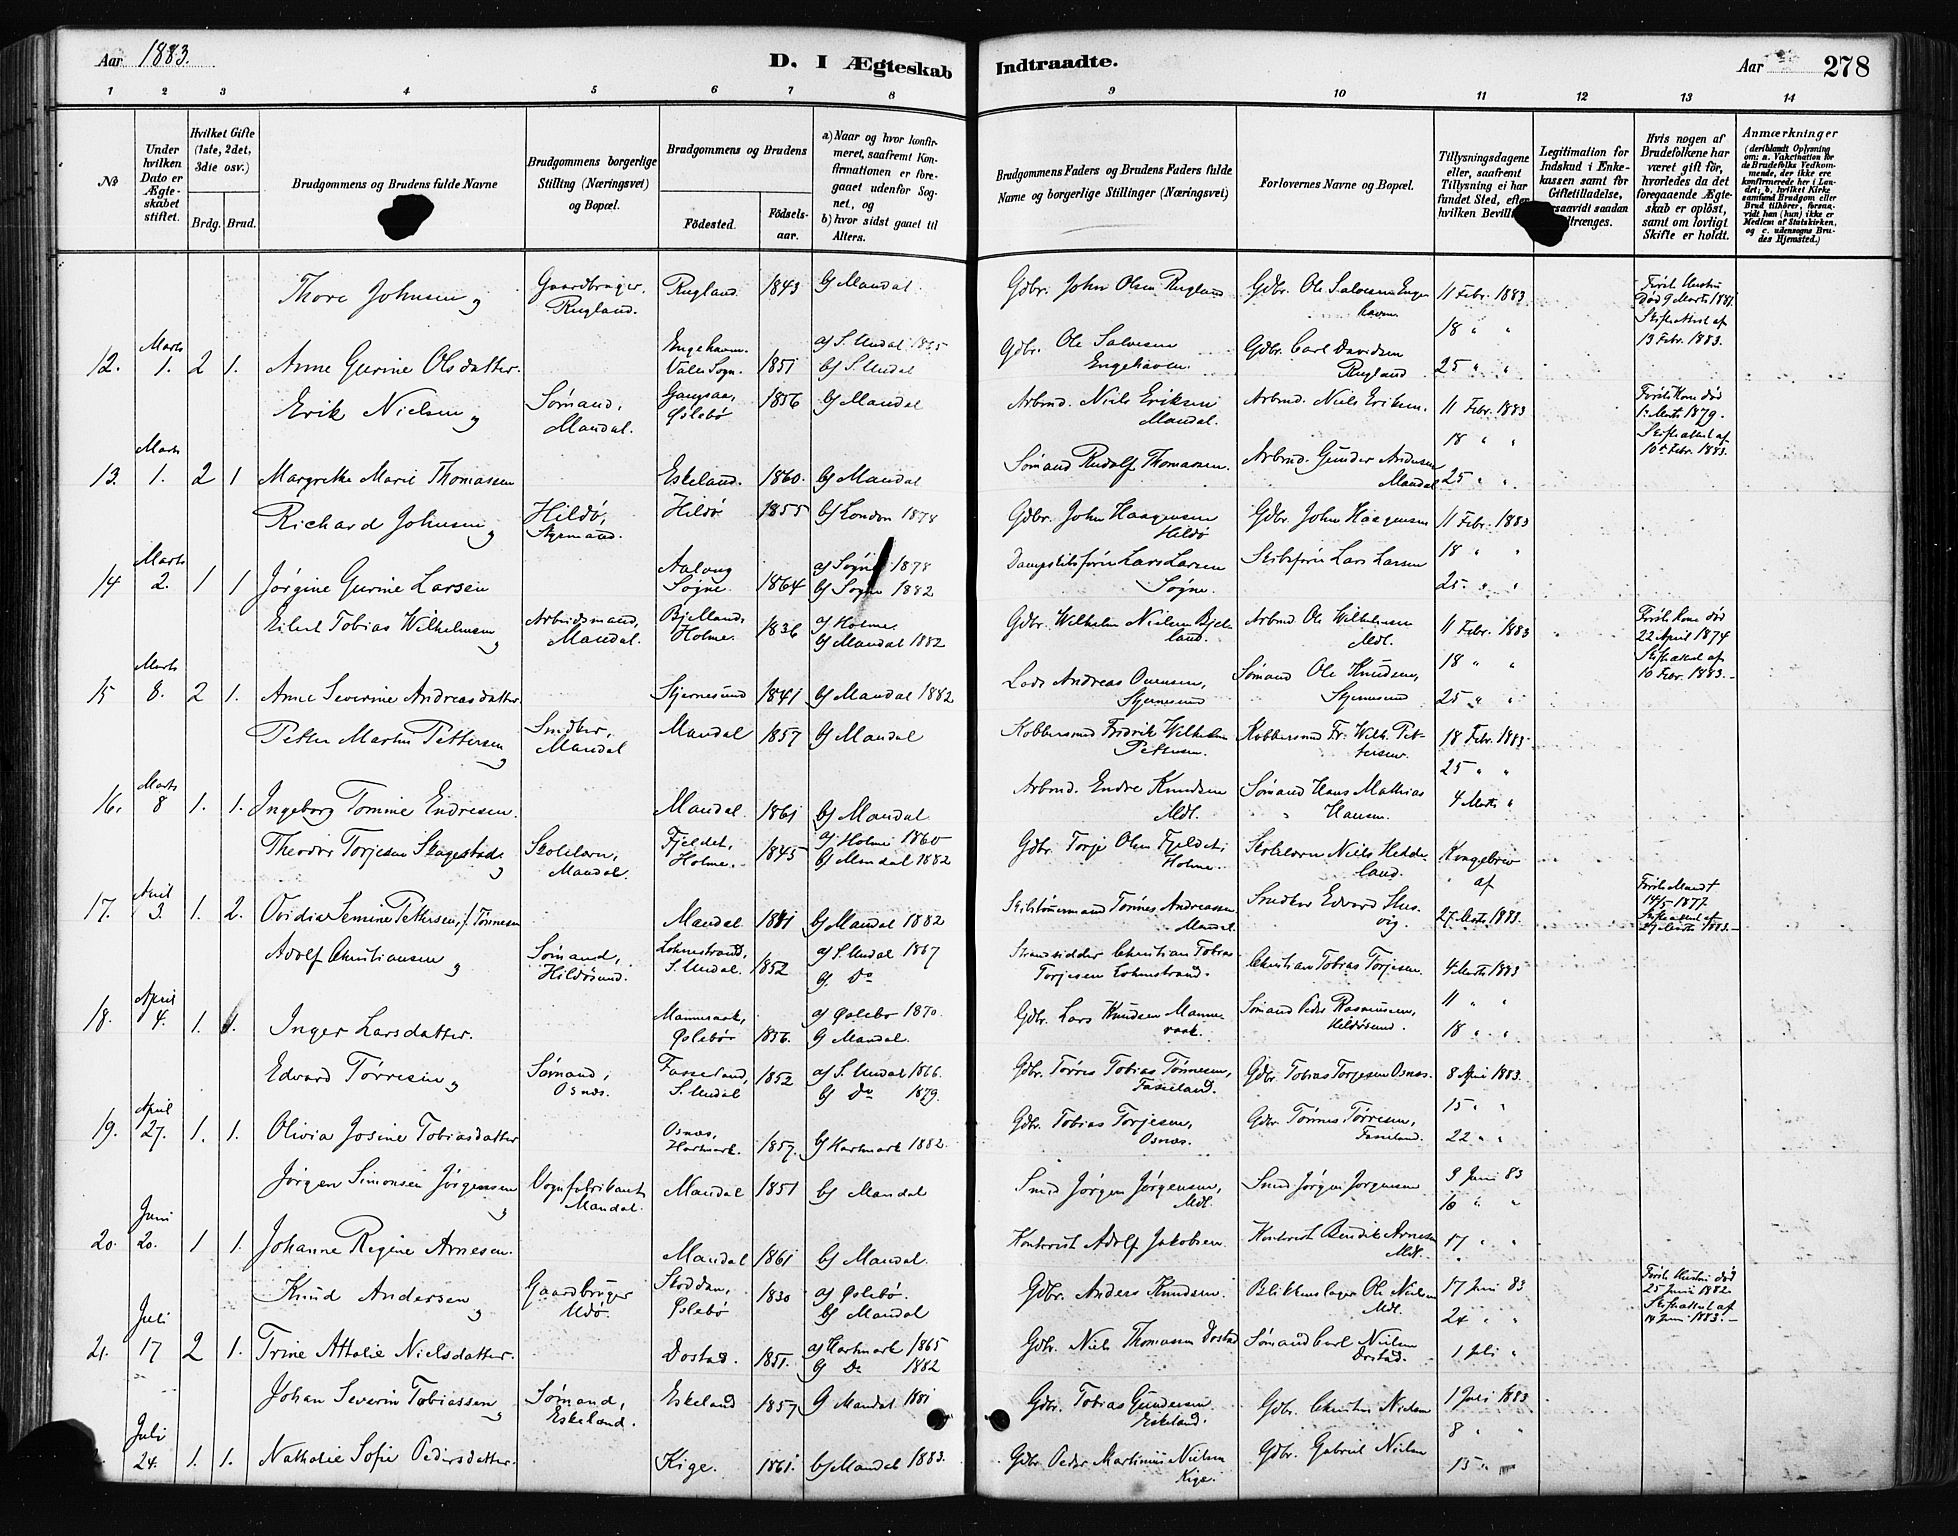 Aar 1883.
D. I Ægteskab Indtraadte.
Aar 278
1 2 3 4 5 6 7 8 9 10 11 12 13 14
No
Under hvilken Dato er Ægteskabet stiftet.
Hvilket Gifte (1ste, 2det, 3die osv.)
Brdg. Brud.
Brudgommens og Brudens fulde Navne
Brudgommens borgerlige Stilling (Næringsvei) og Bopæl.
Brudgommens og Brudens
Fødested. Fødsels-aar.
a) Naar og hvor konfirmeret, saafremt Konfirmationen er foregaaet udenfor Sognet, og
b) hvor sidst gaaet til Alters.
Brudgommens Faders og Brudens Faders fulde Navne og borgerlige Stillinger (Næringsvei)
Forlovernes Navne og Bopæl.
Tillysningsdagene eller, saafremt Tillysning ei har fundet Sted, efter hvilken Bevilling
Legitimation for Indskud i Enkekassen samt for Giftetilladelse, forsaavidt saadan tiltrænges.
Hvis nogen af Brudefolkene har været gift før, hvorledes da det foregaaende Ægteskab er opløst, samt om lovligt Skifte er holdt.
Anmærkninger (deriblandt Oplysning om: a. Vakcination for de Brudefolks Vedkommende, der ikke ere konfirmerede her i Landet; b. hvilket Kirkesamfund Brudgom eller Brud tilhører, forsaavidt han (hun) ikke er Medlem af Statskirken, og c. udensogns Brudes Hjemsted.)
Thore Johnsen og Gaardbruger, Rugland. Rugland 1843 b) Mandal Gdbr. John Olsen Rugland Gdbr. Ole Salvesen Engehavn. 11 Febr. 1883 Første Hustru død 9 Marts 1881. Skifteattest af 13 Febr. 1883.
18 " "
12. Marts 1. 2 1. Anne Gurine Olsdatter. Engehavn. Valle Sogn. 1851 a) S. Undal b) S. Undal Gdbr. Ole Salvesen Engehaven. Gdbr. Carl Davidsen Rugland 25 " "
Erik Nielsen og Sømand, Mandal. Øslebø 1856 b) Mandal Arbmd. Niels Eriksen Mandal. Arbmd. Niels Eriksen. 11 Febr. 1883 Første Kone død 1 Marts 1879. Skifteattest af 10 Febr. 1883.
18 " "
13. Marts 1. 2 1 Margrethe Marie Thomassen Eskeland. 1860. b) Mandal Sømand Rudolf Thomassen. Arbmd. Gunder Andersen Mandal 25 " "
Richard Johnsen og Hildø, Styrmand. Hildø 1855 b) London 1878 Gdbr. John Haagensen Hildø Gdbr. John Haagensen 11 Febr. 1883
18 " "
14 Marts 2. 1 1 Jørgine Gurine Larsen Søgne 1864 a) Søgne 1878 b) Søgne 1882 Lars Larsen Søgne. Skibsfører Lars Larsen 25. " "
Eilert Tobias Wilhelmsen og Arbeidsmand, Mandal. Bjelland, Holme. 1836 a) Holme. b) Mandal 1882 Gdbr. Wilhelm Nielsen Bjelland. Arbmd Ole Wilhelmsen Mdl. 11 Febr. 1883 Første Kone død 22 April 1874 Skifteattest af 10 Febr. 1883.
18 " "
15 Marts 8. 2 1. Anne Severine Andreasdatter Stjernesund 1841 b) Mandal 1882 Lods Andreas Ounsen, Stjernesund Sømand Ole Knudsen, Stjernesund 25 " "
Petter Martin Pettersen og Snedker, Mandal Mandal 1857 b) Mandal Kobbersmed Fredrik Wilhelm Pettersen. Kobbersmed Fr. Wilh. Pettersen. 18 Febr. 1883
25 " "
16. Marts 8 1. 1. Ingeborg Tomine Endresen. Mandal. 1861 b) Mandal Arbmd. Endre Knudsen Mdl. Sømand Hans Mathias Hansen. 4 Marts "
Theodor Torjesen Skagestad og Skolelærer, Mandal. Fjeldet, Holme. 1845 a) Holme 1860 b) Mandal 1882 Gdbr. Torje Olsen Fjeldet, Holme. Skolelærer Niels Heddeland. Kongebrev af
17. April 3. 1. 2. Ovidia Semine Pettersen, f. Tønnesen Mandal b) Mandal 1882 Skibstømmermand Tønnes Andreassen Mandal. Snedker Edvard 27. Marts 1883. Første Mand † 14/5 1877 Skifteattest af Marts 1883.
Adolf Christiansen og Sømand, Hildøsund. Lohnestrand, S. Undal. 1852 a) S. Undal 1867 b) Do Strandsidder Christian Tobias Torjesen Lohnestrand. Christian Tobias Torjesen. 4 Marts 1883
11 " "
18. April 4. 1. 1. Inger Larsdatter. Øslebø 1856. a) Øslebø 1870. b) Mandal. Gdbr. Lars Knudsen Sømand Peder Rasmussen, Hildøsund. 18 " "
Edvard Tørresen og Sømand, Osnæs. Fasseland, S. Undal 1852 a) S. Undal 1866. b) Do 1879. Gdbr. Tørres Tobias Tønnesen, Fasseland. Gdbr. Tobias Torjesen Osnæs. 8 April 1883.
15 " "
19. April 27. 1. 1. Olivia Josine Tobiasdatter Osnæs, Hartmark. 1857. b) Hartmark 1882. Gdbr. Tobias Torjesen, Osnæs. Gdbr. Tønnes Tørresen, Fasseland. 22 " "
Jørgen Simonsen Jørgensen og Vognfabrikant, Mandal. Mandal 1851 b) Mandal Smed Jørgen Jørgensen, Mdl. Smed Jørgen Jørgensen 3 Juni 83
10 " "
20. Juni 20. 1 1. Johanne Regine Arnesen. Mandal 1861 b) Mandal. Kontorist Adolf Jakobsen Kontorist Bendik Arnesen Mdl. 17 " "
Knud Andersen og Gaardbruger Udø. Stoddan, Øslebø 1830 a) Øslebø. b) Mandal Gdbr. Anders Knudsen. Blikkenslager Ole Nielsen Mdl. 17 Juni 83 Første Hustru død 25 Juni 1882 Skifteattest af 14 Juni 1883.
24 " "
21. Juli 17 2 1. Trine Attalie Nielsdatter. Dostad. 1851. a) Hartmark 1865 b) Do 1882 Gdbr. Niels Thomassen Dostad Sømand Carl Nielsen Dostad. 1 Juli "
Johan Severin Tobiassen og Sømand, Eskeland. Eskeland 1857 b) Mandal 1881 Gdbr. Tobias Gundersen Eskeland. Gdbr. Christen Nielsen 1 Juli 1883
8 " "
Juli 24. 1. 1. Nathalie Sofie Pedersdatter. Kige. 1861. b) Mandal 1883. Gdbr. Peder Martinius Nielsen Kige. Gdbr. Gabriel Nielsen 15 " "